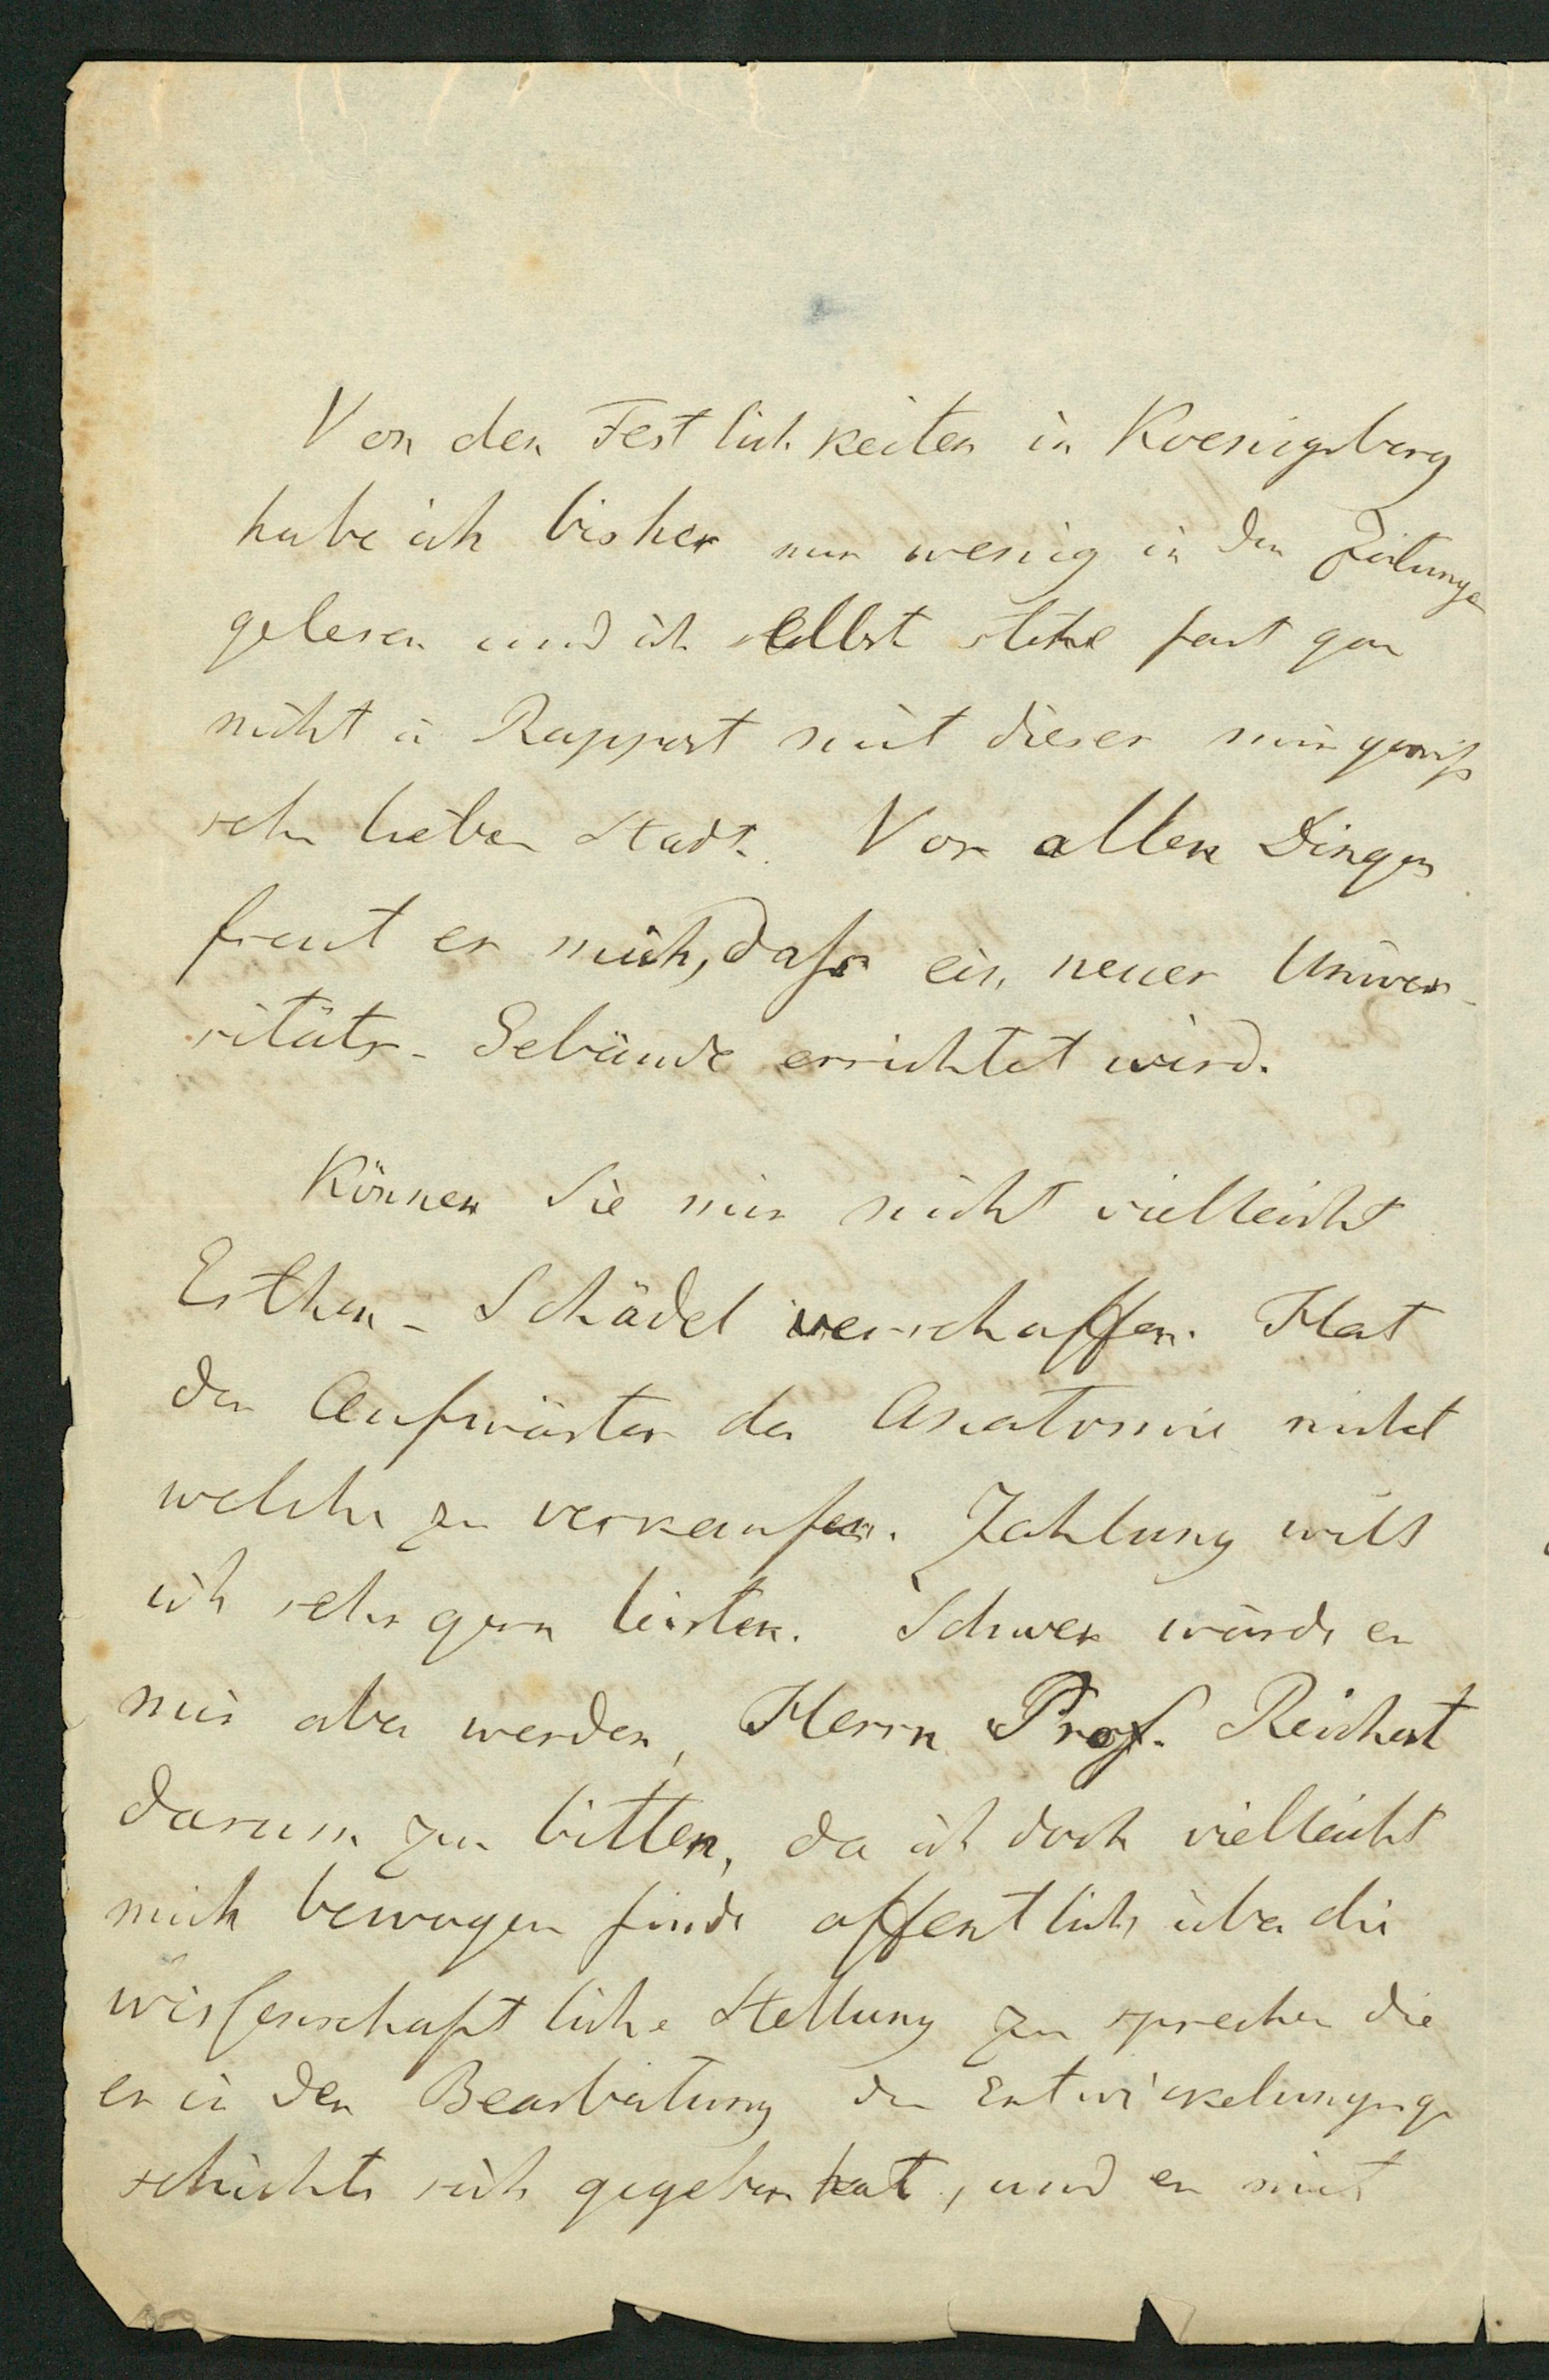 Von den Festlichkeiten in Koenigsberg
habe ich bisher nur wenig in den Zeitungen
gelesen und ich selbst stehe fast gar
nicht in Rapport mit dieser mir gewiß
sehr lieben Stadt. Vor allen Dingen
freut es mich, dass ein neues Univer-
sitäts-Gebäude errichtet wird.
Können Sie mir nicht vielleicht
Esthen-Schädel verschaffen. Hat
der Aufwärter der Anatomie nicht
welche zu verkaufen. Zahlung will
ich sehr gern leisten. Schwer würde es
mir aber werden, Herrn Prof. Reichert
darum zu bitten, da ich doch vielleicht
mich bewogen finde öffentlich über die
wissenschaftliche Stellung zu sprechen die
er in der Bearbeitung der Entwickelungsge
schichte sich gegeben hat, und es mit